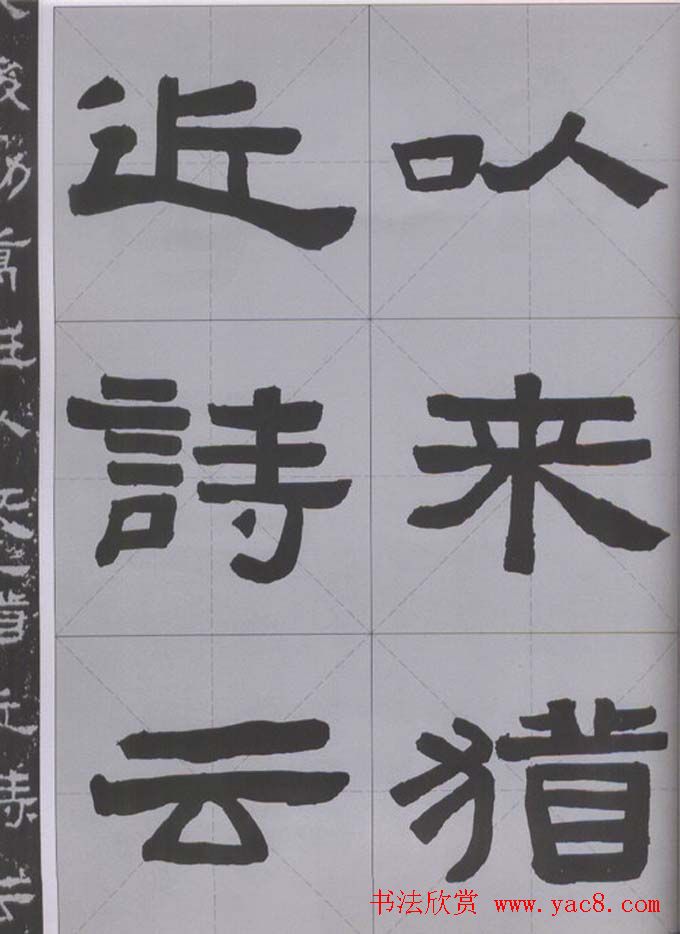 以来猶
近詩云
书法欣赏 www.yac8.com